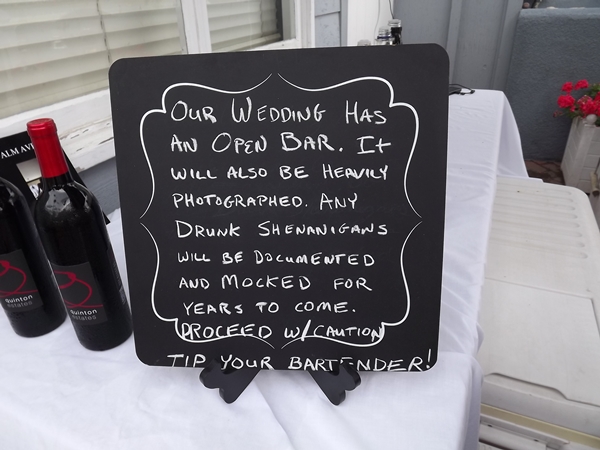 OUR WEDDING HAS
AN OPEN BAR. It
WILL ALSO BE HEAVILY
PHOTOGRAPHED. ANY
DRUNK SHENANIGANS
WILL BE DOCUMENTED
AND MOCKED FOR
YEARS TO COME.
PROCEED W/CAUTION
TIP YOUR BARTENDER!
ALM AV
quinton
estates
quinton
estates